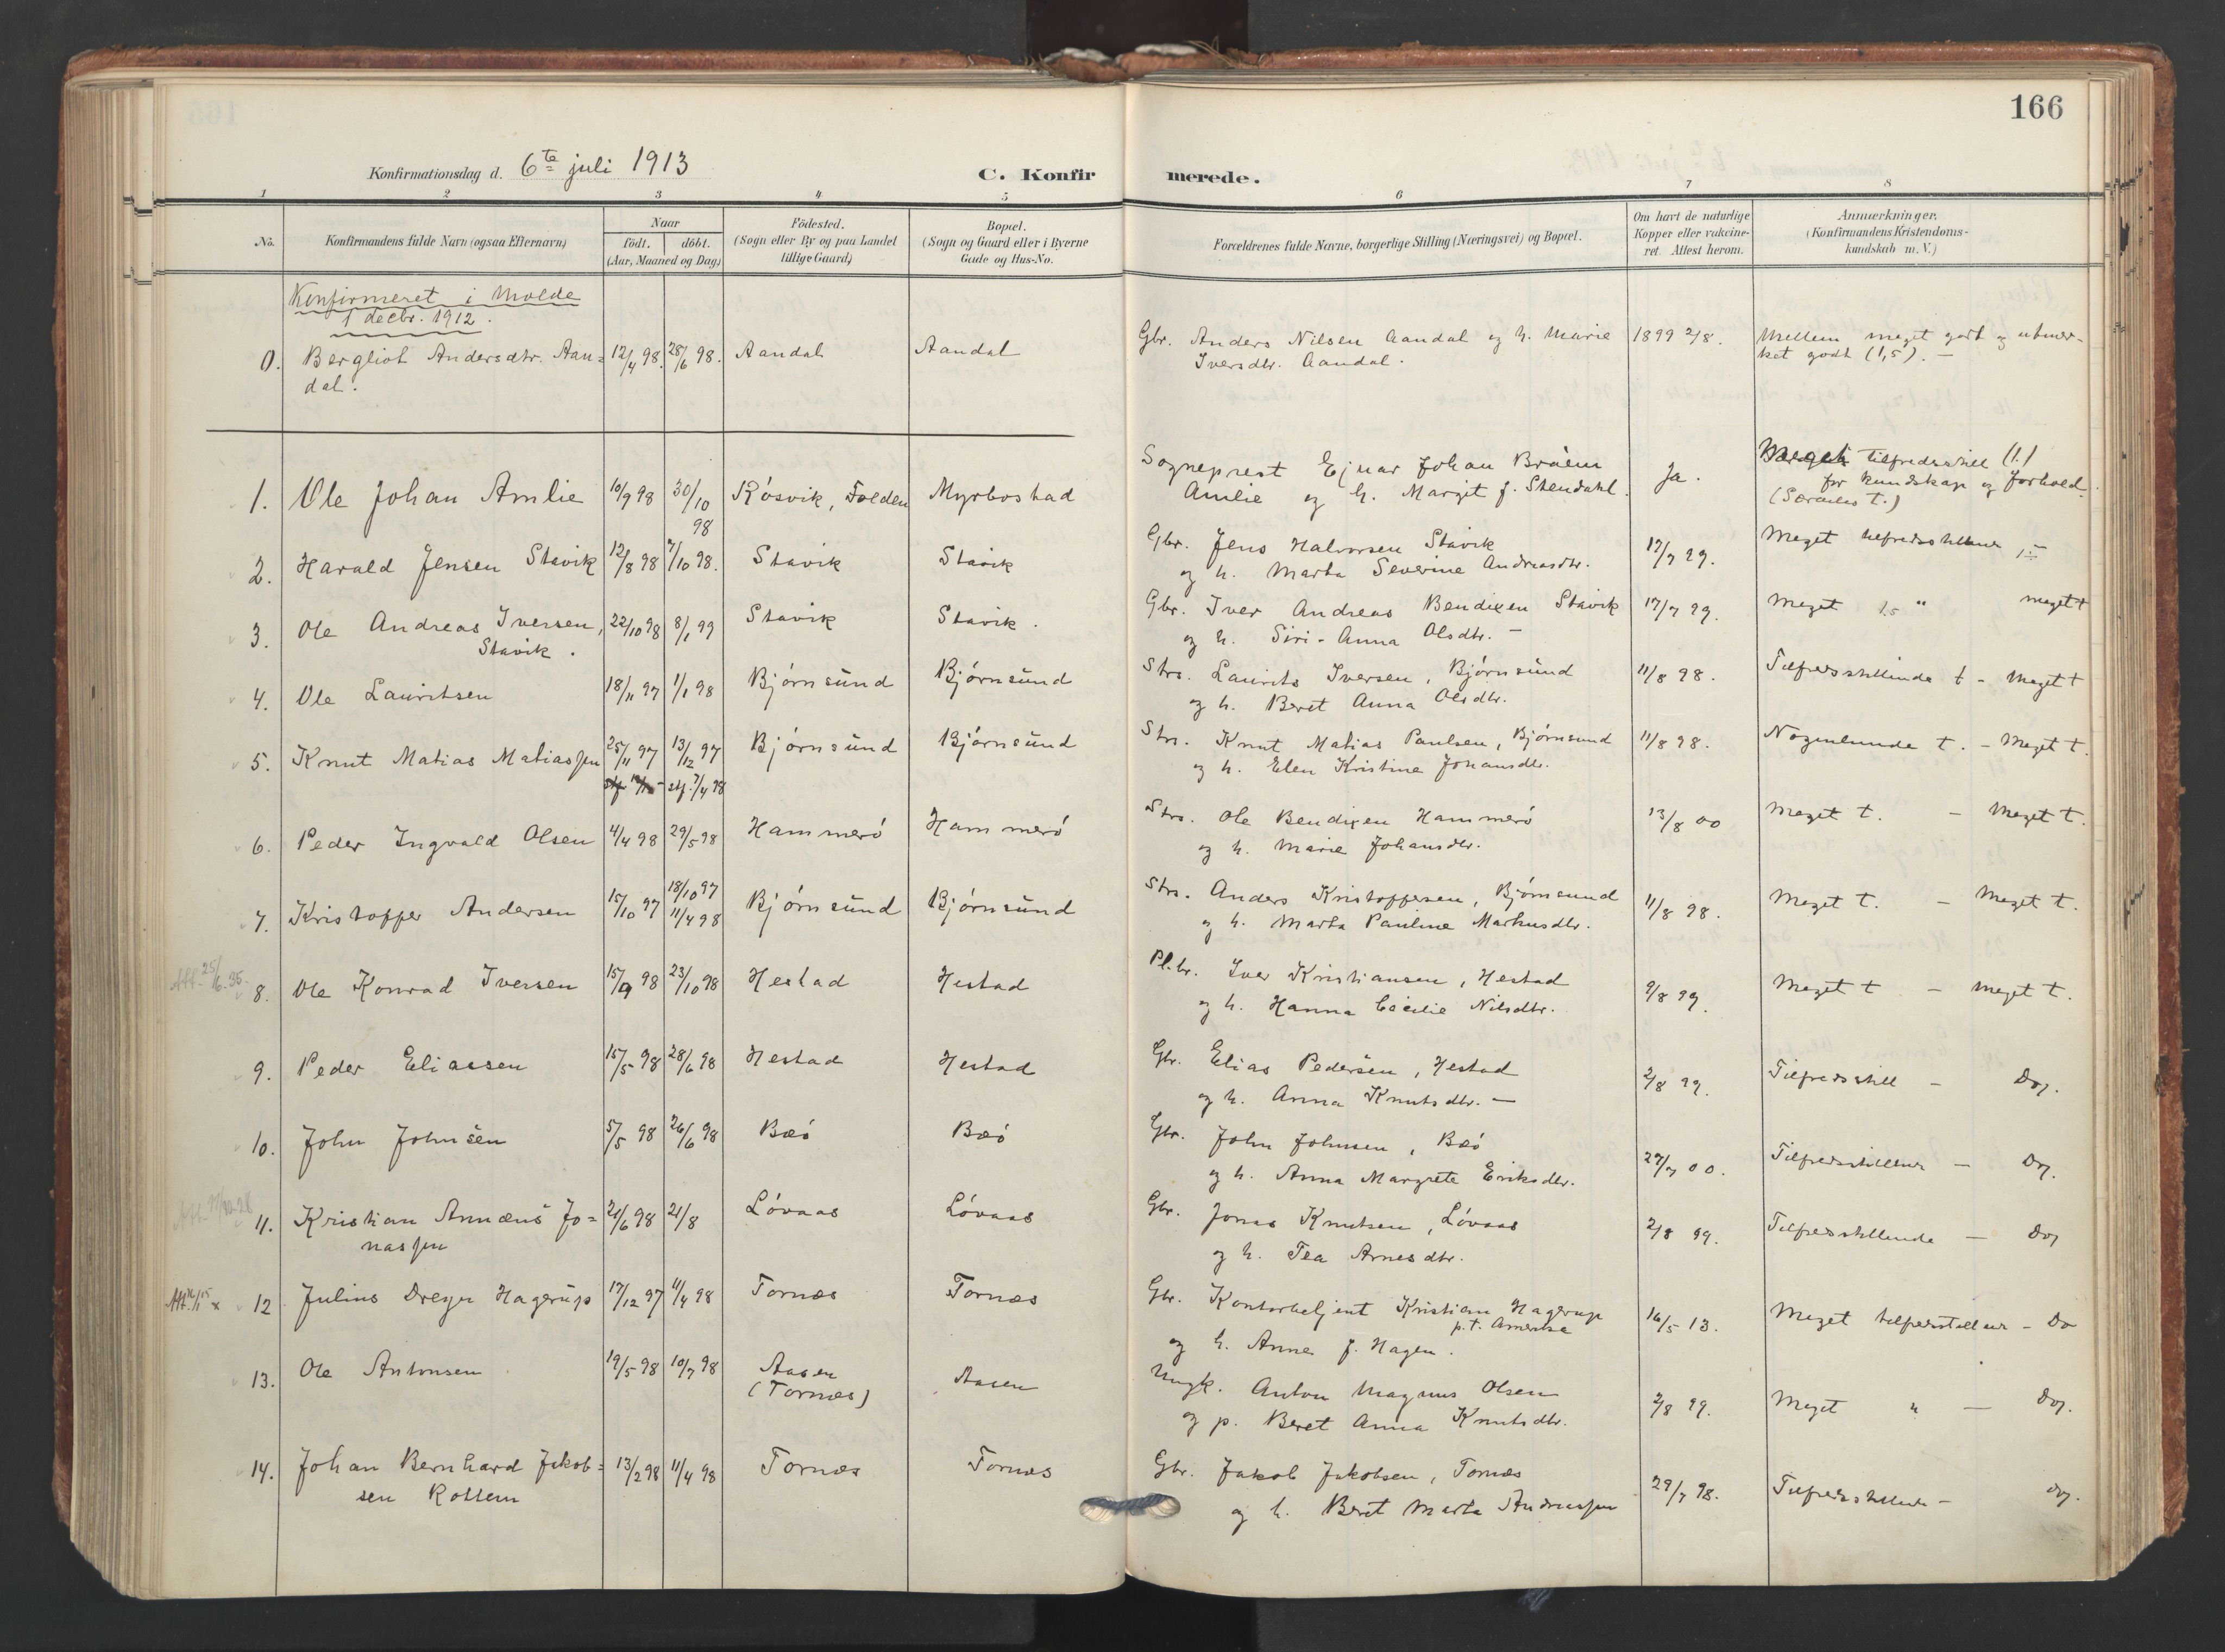 166
Konfirmationsdag d. 6te juli 1913
C. Konfirmerede.
1 2 3 4 5 6 7 8
No.
Konfirmandens fulde Navn (ogsaa Efternavn)
Naar
födt. döbt.
(Aar, Maaned og Dag)
Födested.
(Sogn eller By og paa Landet
tillige Gaard)
Bopæl.
(Sogn og Gaard eller i Byerne
Gade og Hus-No.
Forældrenes fulde Navne, borgerlige Stilling (Næringsvei) og Bopæl.
Om havt de naturlige
Kopper eller vakcine-
ret. Attest herom.
Anmærkninger.
(Konfirmandens Kristendoms-
kundskab m. V.)
Konfirmeret i Molde
1 decbr. 1912.
0. Bergliot Andersdtr. Aan= 12/4 98. 28/6 98. Aandal Aandal Gbr. Anders Nilsen Aandal og h. Marie 1899 2/8. Mellem meget godt og utmær-
dal. Iversdtr. Aandal. ket godt (1,5). —
1. Ole Johan Amlie 10/9 98 30/10 98 Rösvik, Folden Myrbostad Sogneprest Ejnar Johan Bráem Ja. Meget tilfredsstill (1.)
Amlie og h. Margit f. Stendahl. for kundskap og forhold.
(Særdeles t.)
2. Harald Jensen Stavik 12/8 98 7/10 98. Stavik Stavik Gbr. Jens Halvorsen Stavik 17/7 99. Meget tilfredsstillende
og h. Marta Severine Andreasdtr.
3. Ole Andreas Iversen, 22/10 98 8/1 99 Stavik Stavik. Gbr. Iver Andreas Bendixen Stavik 17/7 99. Meget 1.5 " meget t
Stavik. og h. Siri-Anna Olsdtr. —
4. Ole Lauritsen 18/11 97 1/1 98 Björnsund Björnsund Strs. Laurits Iversen, Björnsund 11/8 98. Tilfredsstillende t - Meget t
og h. Beret Anna Olsdtr.
5. Knut Matias Matiassen 25/11 97 13/12 97 Björnsund Björnsund Strs. Knut Matias Paulsen, Björnsund 11/8 98. Nogenlunde t. - Meget t.
stf. 7/4 98 og h. Elen Kristine Johansdtr.
6. Peder Ingvald Olsen 4/4 98 29/5 98 Hammerö Hammerö Strs. Ole Bendixen Hammerö 13/8 00 Meget t. - Meget t.
og h. Marie Johansdtr.
7. Kristoffer Andersen 15/10 97 18/10 97 11/4 98 Björnsund Björnsund Strs. Anders Kristoffersen, Björnsund 11/8 98. Meget t. - Meget t.
og h. Marta Pauline Markusdtr.
Att. 25/6.35. 8. Ole Konrad Iversen 15/9 98 23/10 98 Hestad Hestad Pl.br. Iver Kristiansen, Hestad 9/8 99. Meget t - Meget t.
og h. Hanna Cecilie Nilsdtr.
9. Peder Eliassen 15/5 98 28/6 98 Hestad Hestad Gbr. Elias Pedersen, Hestad 2/8 99. Tilfredsstill - Do.
og h. Anna Knutsdtr. —
10. John Johnsen 5/5 98 26/6 98 Bæö Bæö Gbr. John Johnsen, Bæö 27/7 00. Tilfredsstillende - Do.
og h. Anna Margrete Eriksdtr.
11. Kristian Annæus Jo= 21/6 98 21/8 Lövaas Lövaas Gbr. Jonas Knutsen, Lövaas 2/8 99. Tilfredsstillende - Do
nassen og h. Tea Arnesdtr.
12 Julius Dreyer Hagerup 17/12 97 11/4 98 Tornæs Tornæs Gbr. Kontorbetjent Kristian Hagerup 16/5 13. Meget tilfredsstillende - Do
p.t. Amerika
og h. Anne f. Hagen.
13. Ole Antonsen 19/5 98 10/7 98 Aasen Aasen Ungk. Anton Magnus Olsen 2/8 99. Meget " - Do.
(Tornæs) og p. Beret Anna Knutsdtr.
14. Johan Bernhard Jakob= 13/2 98 11/4 98 Tornæs Tornæs Gbr. Jakob Jakobsen, Tornæs 29/7 98. Tilfredsstillende - Do.
sen Rottem og h. Beret Marta Andreassen